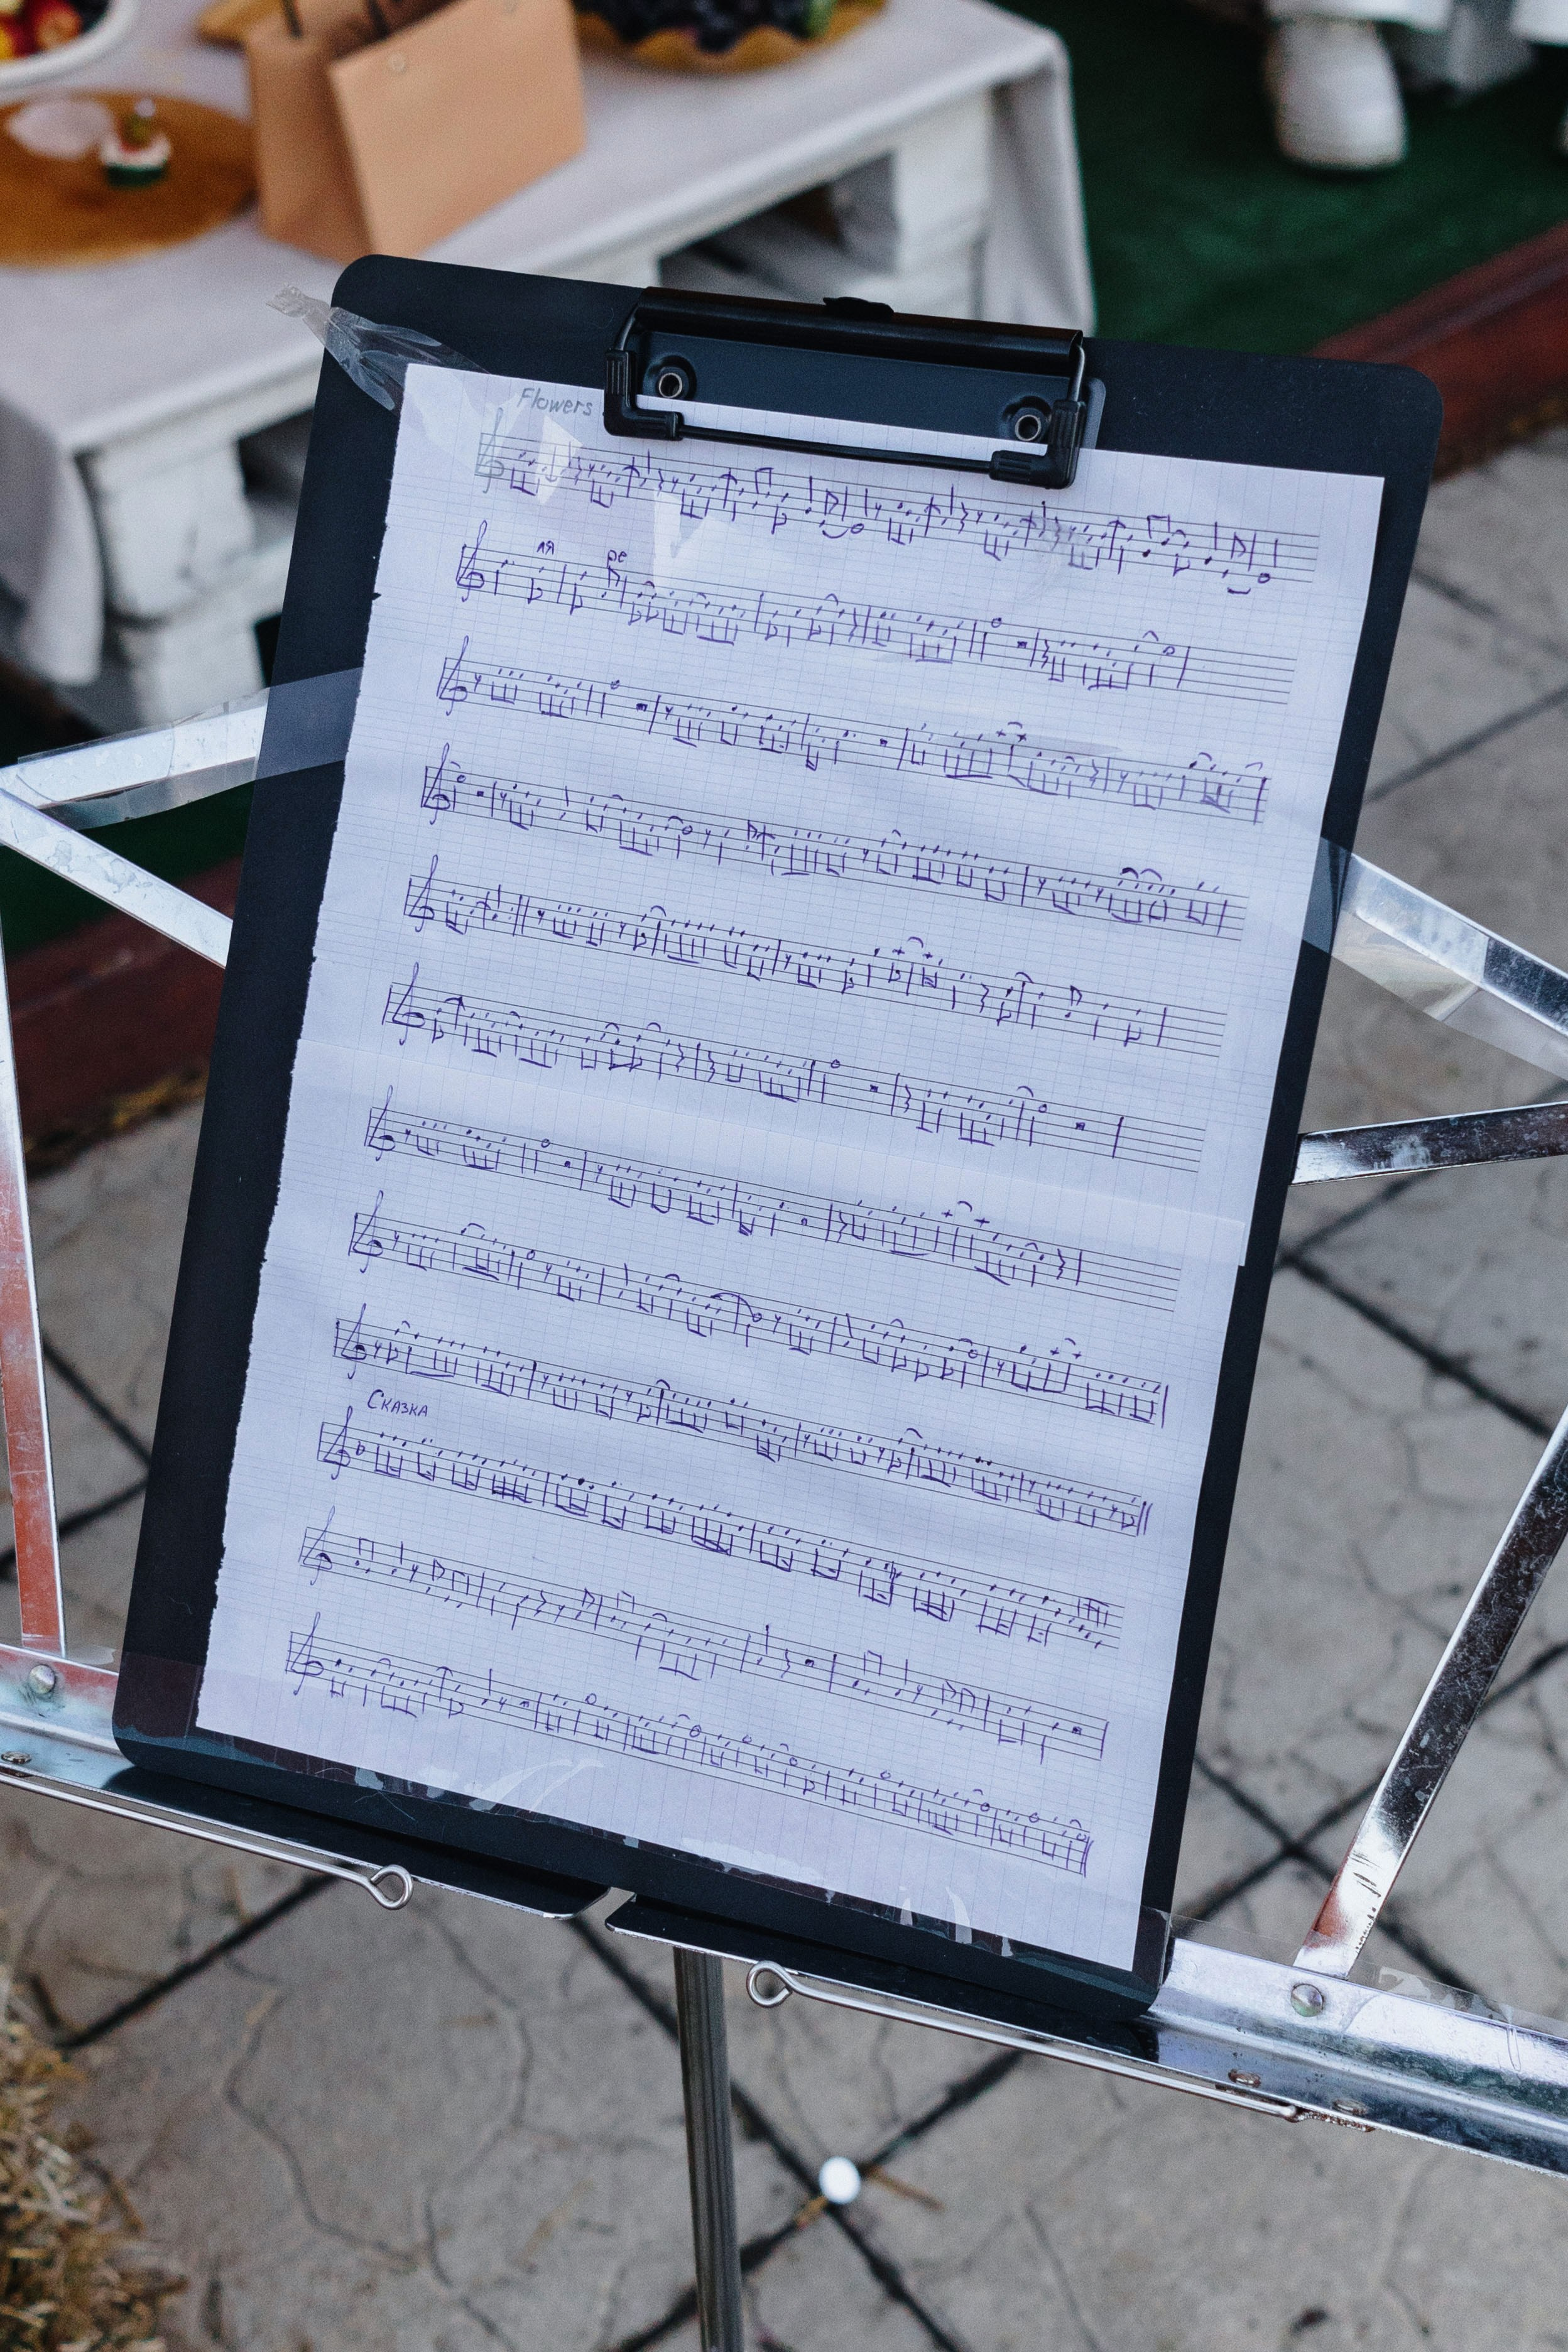 Flowers
ля ре
Сказка